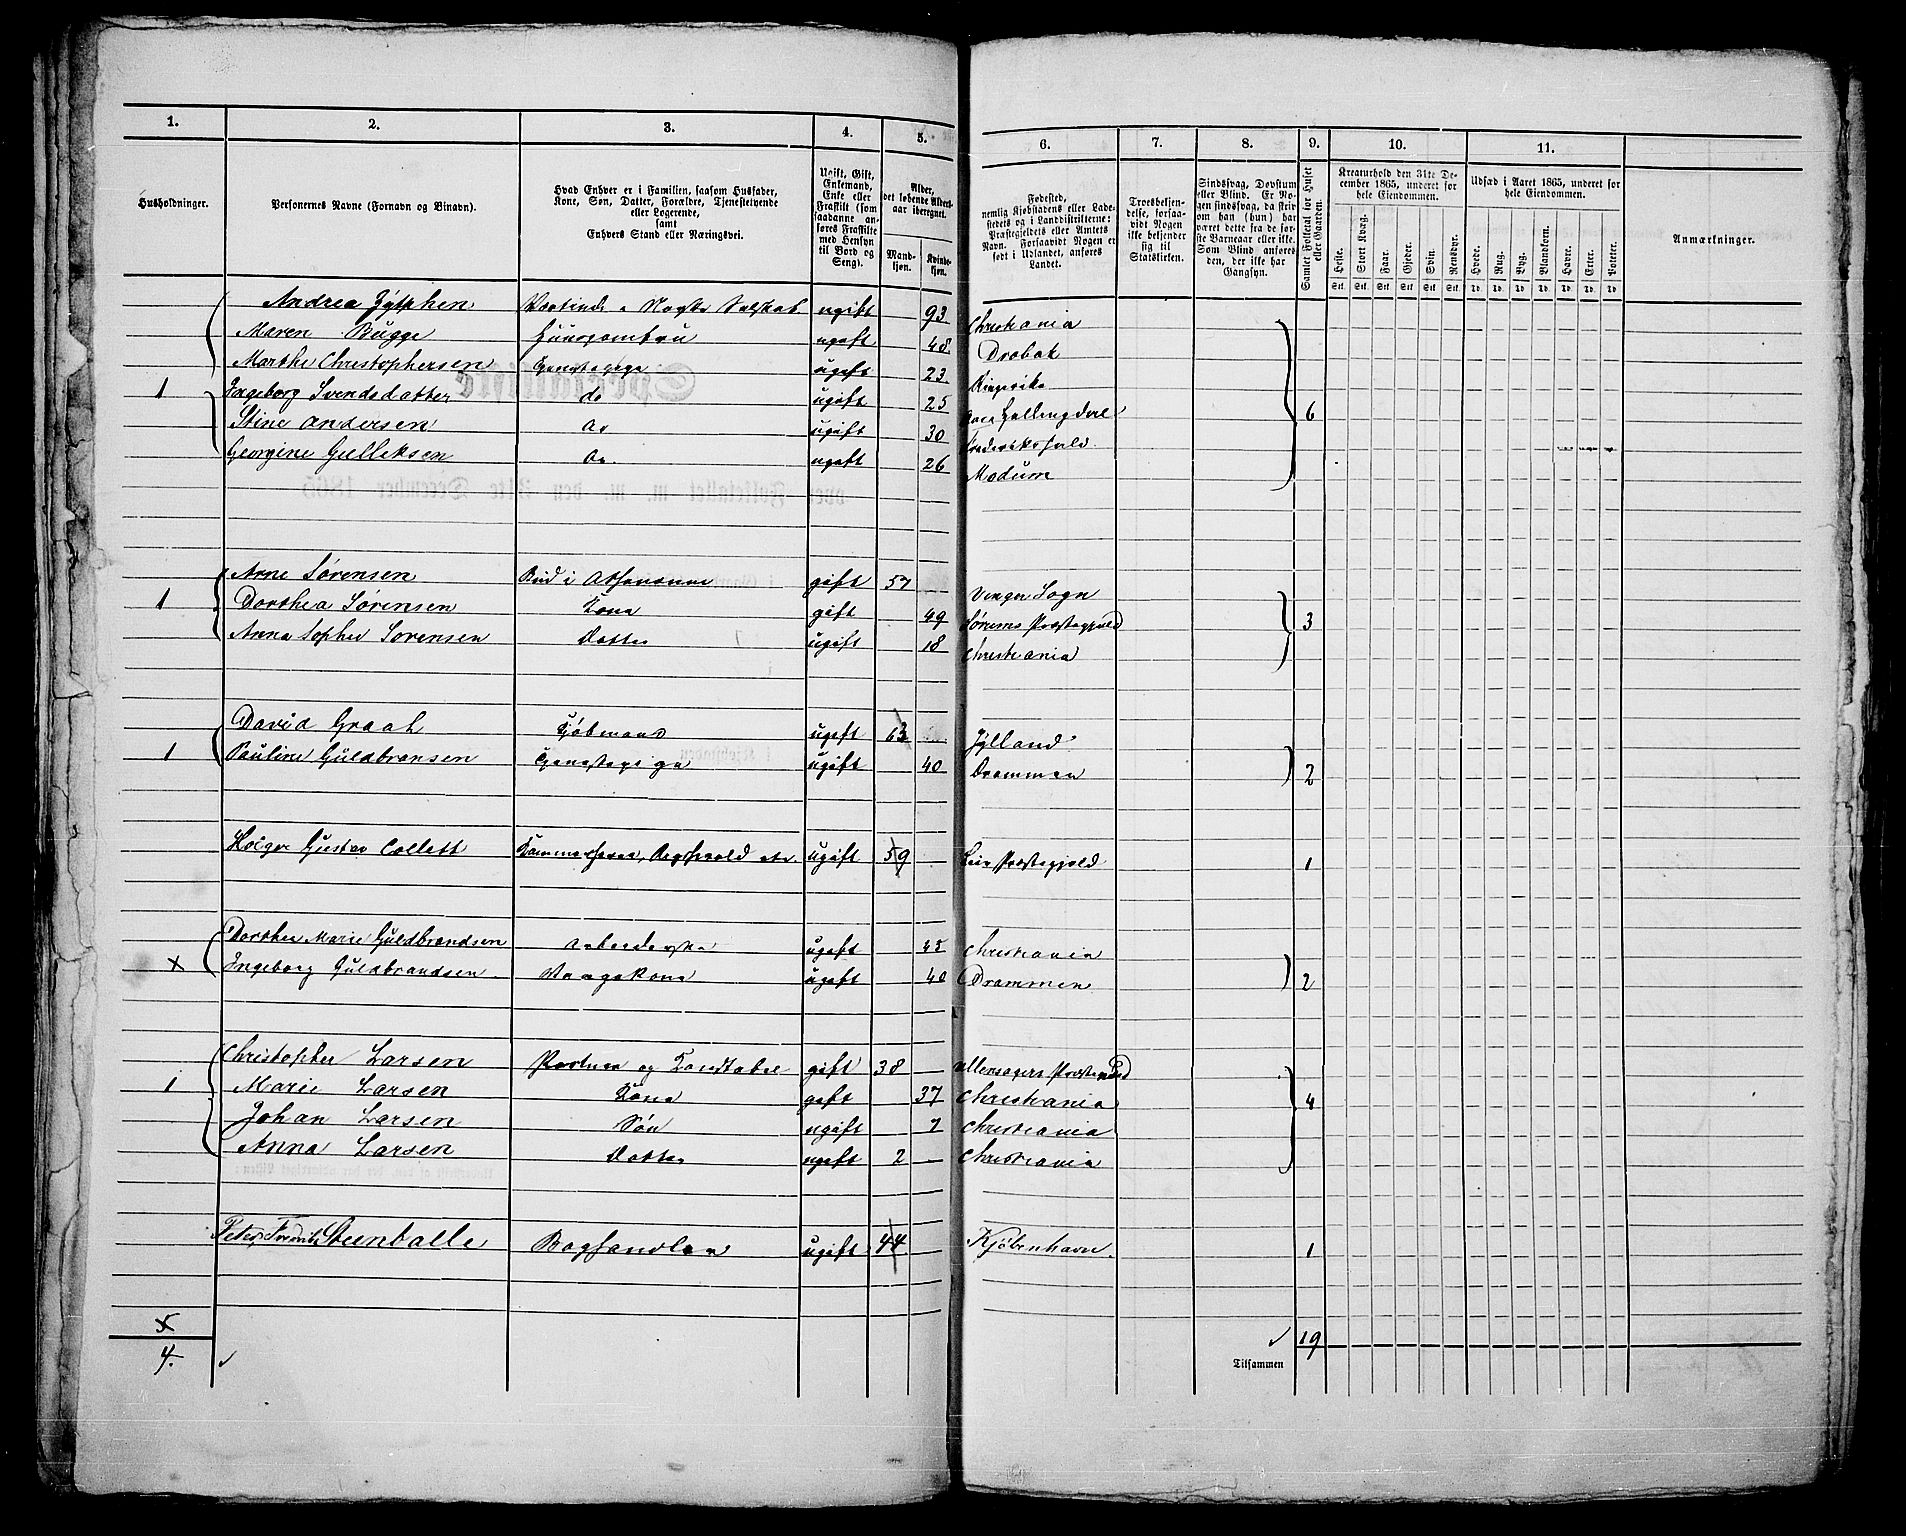 1. 2. 3. 4. 5. 6. 7. 8. 9. 10. 11.
Husholdninger.
Personernes Navne (Fornavn og Binavn).
Hvad Enhver er i Familien, saasom Husfader,
Kone, Søn, Datter, Forældre, Tjenestetyende
eller Logerende,
samt
Enhvers Stand eller Næringsvei.
Ugift, Gift,
Enkemand,
Enke eller
Fraskilt (som
saadanne an-
føres Fraskilte
med Hensyn
til Bord og
Seng).
Alder,
det løbende Alders-
aar iberegnet.
Mand-
kjøn.
Kvinde-
kjøn.
Fødested,
nemlig Kjøbstadens eller Lade-
stedets og i Landdistrikterne:
Præstegjeldets eller Amtets
Navn. Forsaavidt Nogen er
født i Udlandet, anføres
Landet.
Troesbekjen-
delse, forsaa-
vidt Nogen
ikke bekjender
sig til
Statskirken.
Sindssvag, Døvstum
eller Blind. Er No-
gen sindssvag, da skriv
om han (hun) har
været dette fra de før-
ste Barneaar eller ikke.
Som Blind anføres
den, der ikke har
Gangsyn.
Samlet Folketal for Huset
eller Gaarden.
Kreaturhold den 31te De-
cember 1865, underet for
hele Eiendommen.
Heste. Stort Kvæg. Faar. Gjeder. Svin. Rensdyr.
Stk. Stk. Stk. Stk. Stk. Stk.
Udsæd i Aaret 1865, underet for
hele Eiendommen.
Hvede. Rug. Byg. Blandkorn. Havre. Erter. Poteter.
Td. Td. Td. Td. Td. Td. Td.
Anmærkninger.
Andrea ugift 93 Christiania
Maren Bugge ugift 48. Drøbak
Marthe Christophersen ugift 23. Ringerike
1 Ingeborg Svendsdatter do ugift 25 Hallingdal 6
Stine Andersen do ugift 30 Frederikshald
Georgine Gulleksen do. ugift 26 Modum
Arne Sørensen Bud i gift 57 Vinger Sogn
1 Dorthea Sørensen Kone gift 49 Sørums Præstegjeld 3
Anna Sophie Sørensen Datter ugift 18 Christiania
David Graah Kjøbmand ugift 63 Jylland
1 Pauline Guldbransen Tjenestepige ugift 40 Drammen 2
Holger Gustav Collett Kammerherre, ugift 59 Præstegjeld 1
Dorthea Marie Guldbrandsen Arbeiderske ugift 45 Christiania
x Ingeborg Guldbrandsen Vaagekone ugift 40 Drammen 2
Christopher Larsen Portner og gift 38 Ullensagers Præstegjeld
1 Marie Larsen Kone gift 37 Christiania 4
Johan Larsen Søn ugift 7 Christiania
Anna Larsen Datter ugift 2 Christiania
Peter Fredrik Steenballe Boghandler ugift 44 Kjöbenhavn. 1
5
4.
19
Tilsammen